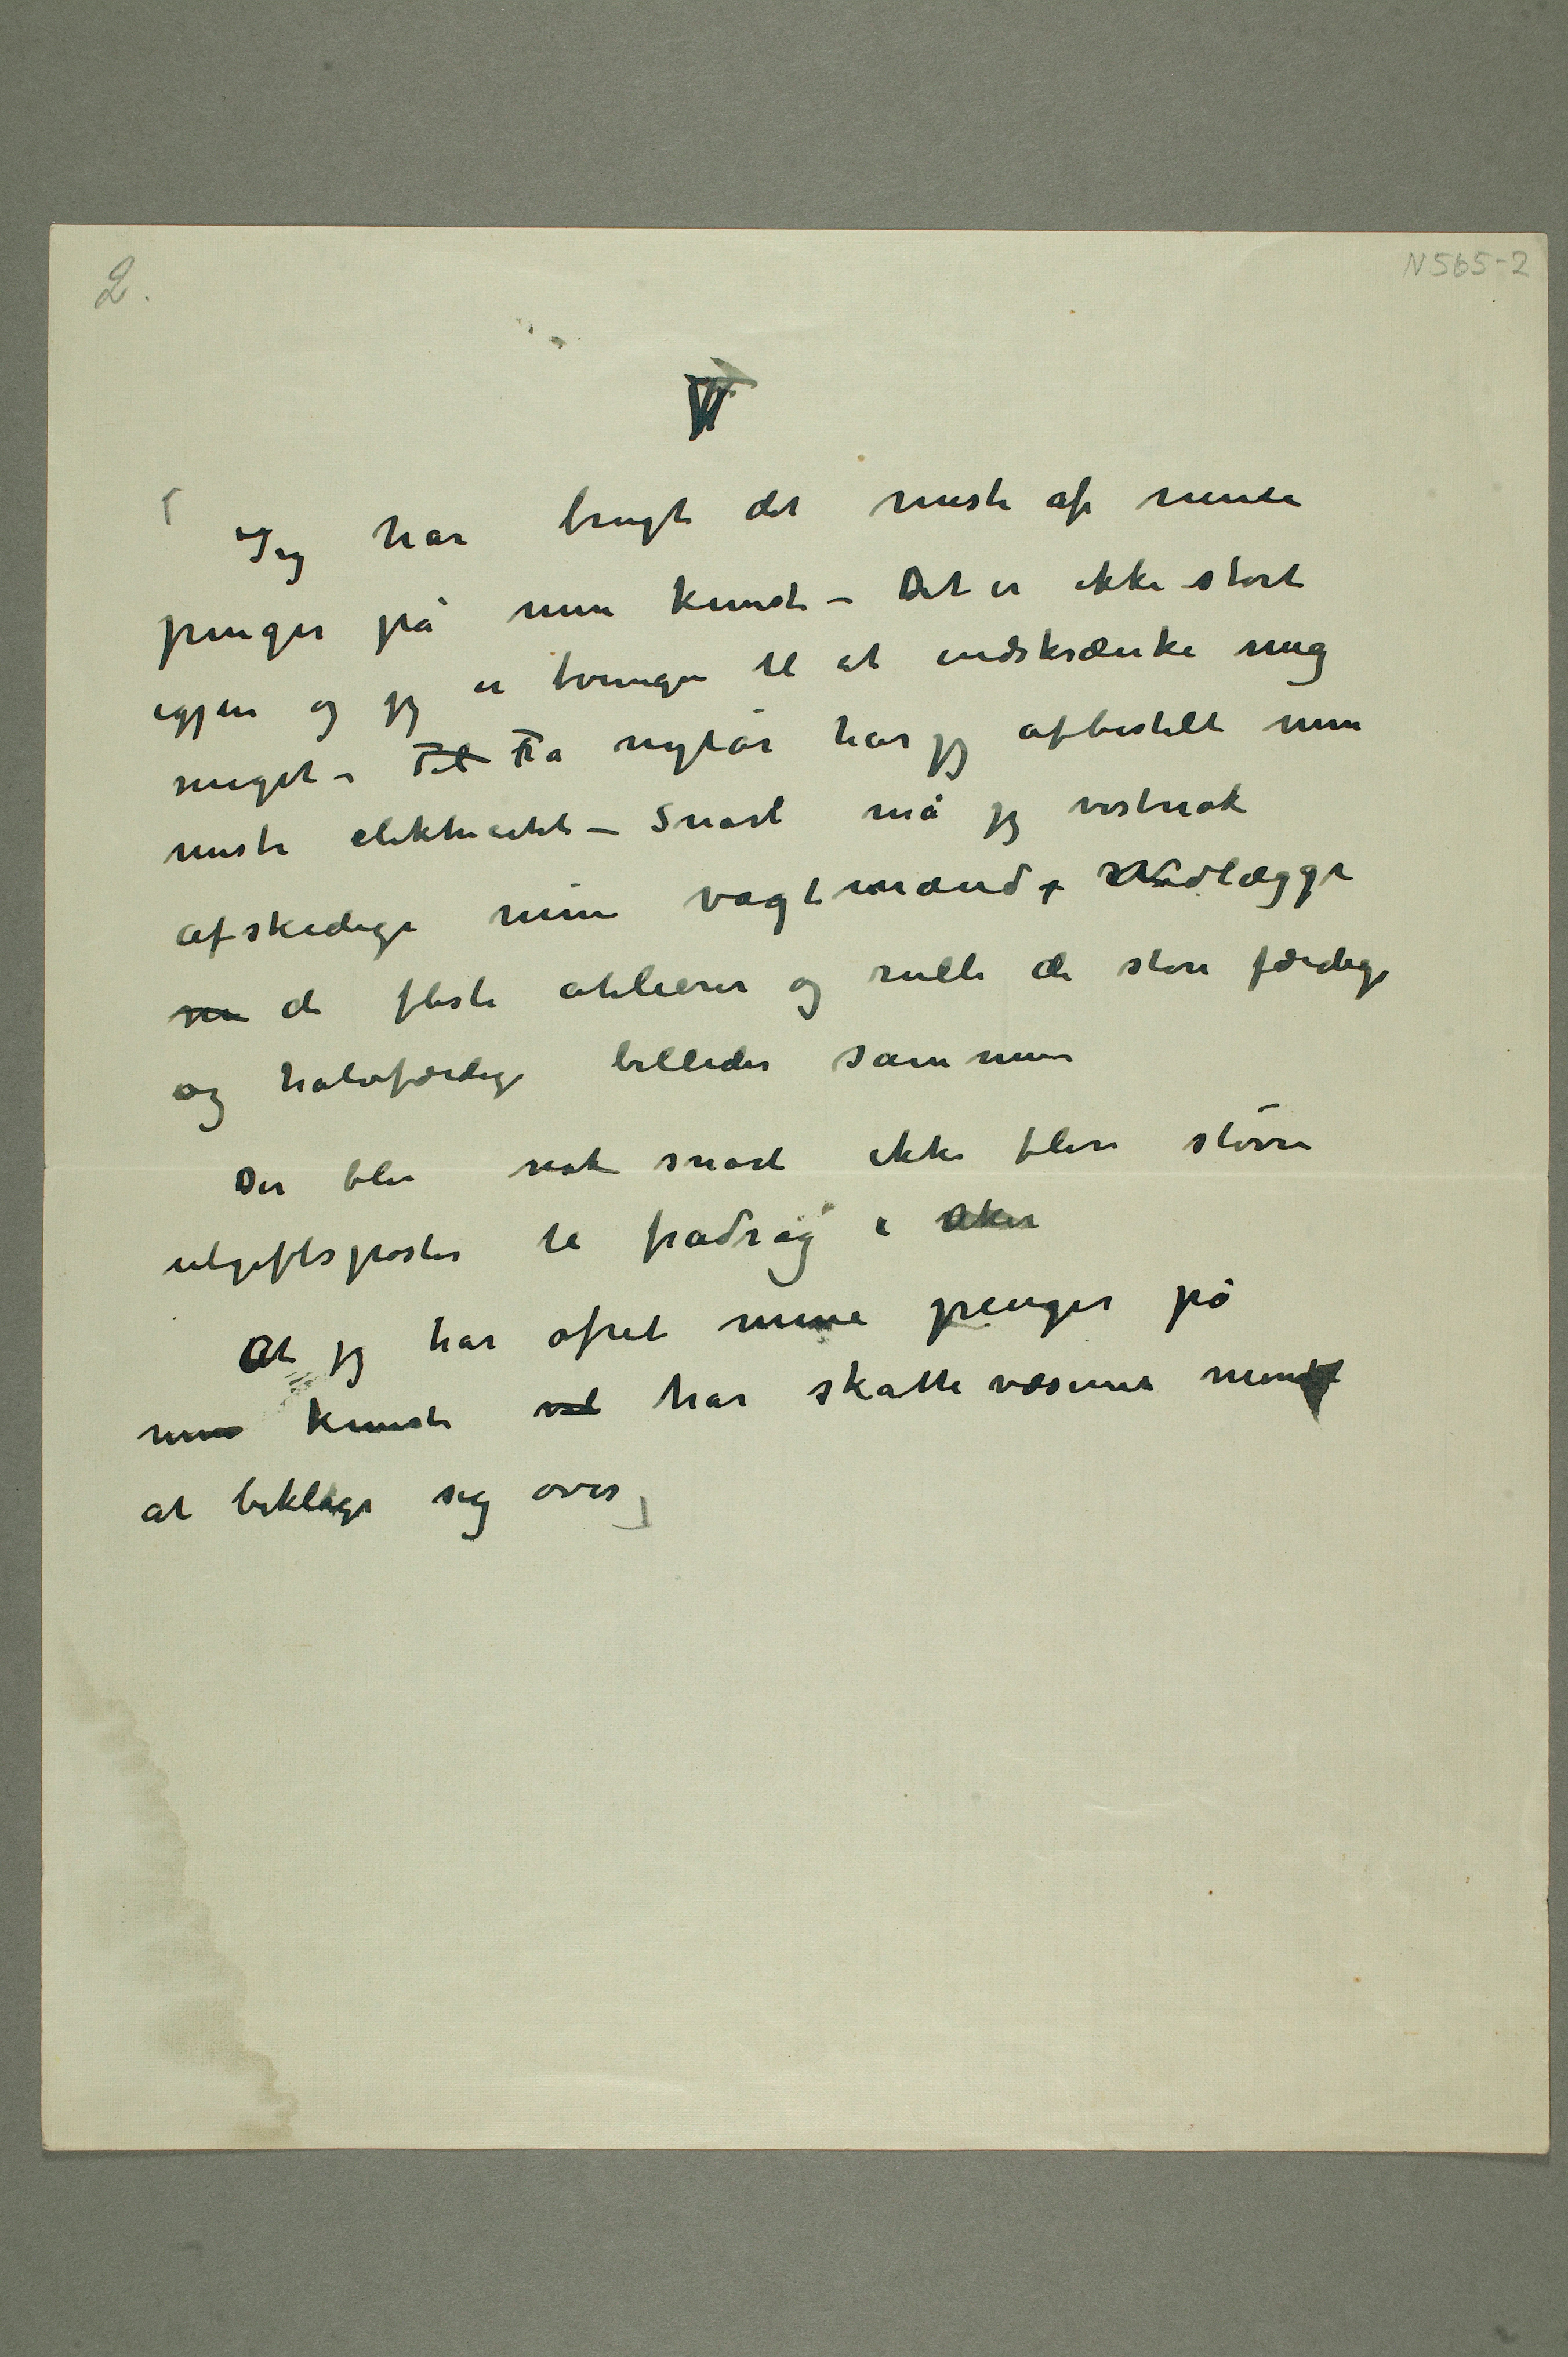 2.
N 565-2
Jeg har brugt det meste af mine
penger på min kunst – Det er ikke stort
igjen og jeg er tvungen til at indskrænke mig
meget – Til Fra nytår har jeg afbestilt min
meste elektricitet – Snart må jeg vistnok
afskedige mine vagtmænd, Nedlægge
de fleste atelierer og rulle de store færdige
og halvfærdige billeder sammen
Der blir nok snart ikke flere større
utgiftsposter til fradrag i Aker
At jeg har ofret mine penger på
min kunst har skattevæsenet mindst
at beklage sig over